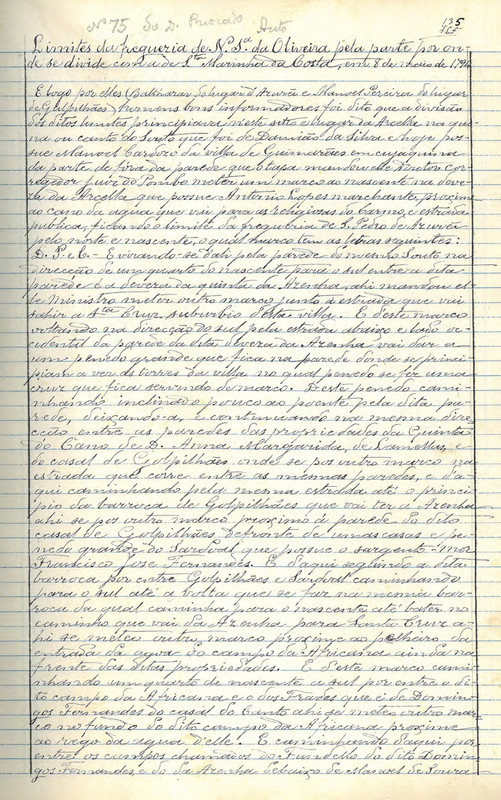 Nº 75 do D. Priorado Auto
135
Limites da freguezia de N. Sª da Oliveira pela parte por on-
de se divide com a de Sta Marinha da Costa, em 8 de maio de 1794
E logo por elles Balthazar Salgado d'Azurêm e Manoel Pereira do lugar
de Golpilhães, homens bons informadores foi dito que a divisão
dos ditos limites principiará neste sitio e lugar da Arcella na qui-
na ou canto do Souto que foi de Damião da Silva e hoje pos-
sue Manoel Cardozo da villa de Guimarães em cuja quina
da parte de fóra da parede que o tapa mandou elle Doutor Cor-
regedor juiz do Tombo meter um marco ao nascente na deve-
za da Arcella que possue Antonio Lopes marchante, proximo
ao cano da agua que vai para as religiosas do Carmo, e estrada
publica, ficando o limite da freguezia de S. Pedro de Azurêm
pelo norte e nascente, o qual marco tem as letras seguintes:
D. P. C. - E virando-se d'ahi pela parede do mesmo Souto na
direcção de um quarto do nascente para o sul entre a dita
parede e a deveza da quinta da Azenha, ahi mandou el-
le Ministro meter outro marco junto á estrada que vai
sahir a Sta Cruz, suburbio d'esta villa. E d'este marco
voltando na direcção do sul pela estrada abaixo e lado oc-
cidental da parede da dita deveza da Azenha vai dar a
um penedo grande que fica na parede donde se princi-
piam a ver as torres da villa no qual penedo se fez uma
cruz que fica servindo de marco. D'este penedo cami-
nhando inclinado pouco ao poente pela dita pa-
rede, deixando-a, e continuando na mesma dire-
cção entre as paredes das propriedades da Quinta
do Cano de D. Anna Margarida, de Lamellas, e
do casal de Golpilhães onde se poz outro marco na
estrada que corre entre as mesmas paredes, e d'a-
qui caminhando pela mesma estrada até o princi-
pio da barroca de Golpilhães que vai ter á Azenha
ahi se poz outro marco proximo á parede do dito
casal de Golpilhães defronte de umas casas e pe-
nedo grande do Sardoal que possue o sargento-mor
Francisco José Fernandes. E d'aqui seguindo a dita
barroca por entre Golpilhães e Sardoal caminhando
para o sul até a volta que se faz na mesma bar-
roca da qual caminha para o nascente até bater no
caminho que vai da Azenha para Santa Cruz a-
hi se meteo outro marco proximo ao pilheiro da
entrada da agoa do campo da Africana ainda na
frente das ditas propriedades. E d'este marco cami-
nhando um quarto de nascente a sul por entre o di-
to campo da Africana e o dos Frades que é de Domin-
gos Fernandes do casal do Canto ahi se meteu outro mar-
co no fundo do dito campo da Africana proximo
ao rego da agua d'elle. E caminhando d'aqui por
entre os campos chamados do Fundello do dito Domin-
gos Fernandes, e do da Azenha debaixo de Manoel de Souza